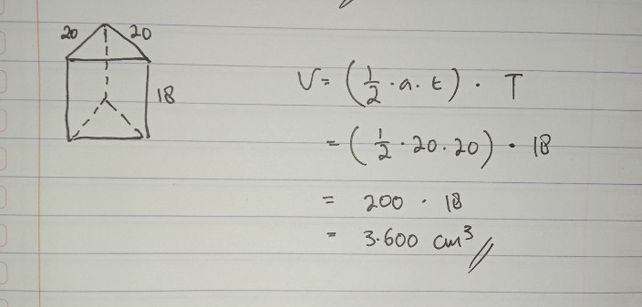 20 20
18
V = (1/2 · a · t) · T
= (1/2 · 20 · 20) · 18
= 200 · 18
= 3.600 cm³ //